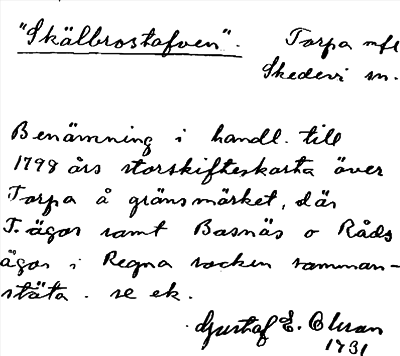 "Skälbrostafven".
Torpa mfl
Skedevi sn.
Benämning i handl. till
1798 års storskifteskarta över
Torpa å gränsmärket, där
T. ägor samt Basnäs o Råds
ägor i Regna socken samman-
stöta. se ek.
Gustaf E.
1931